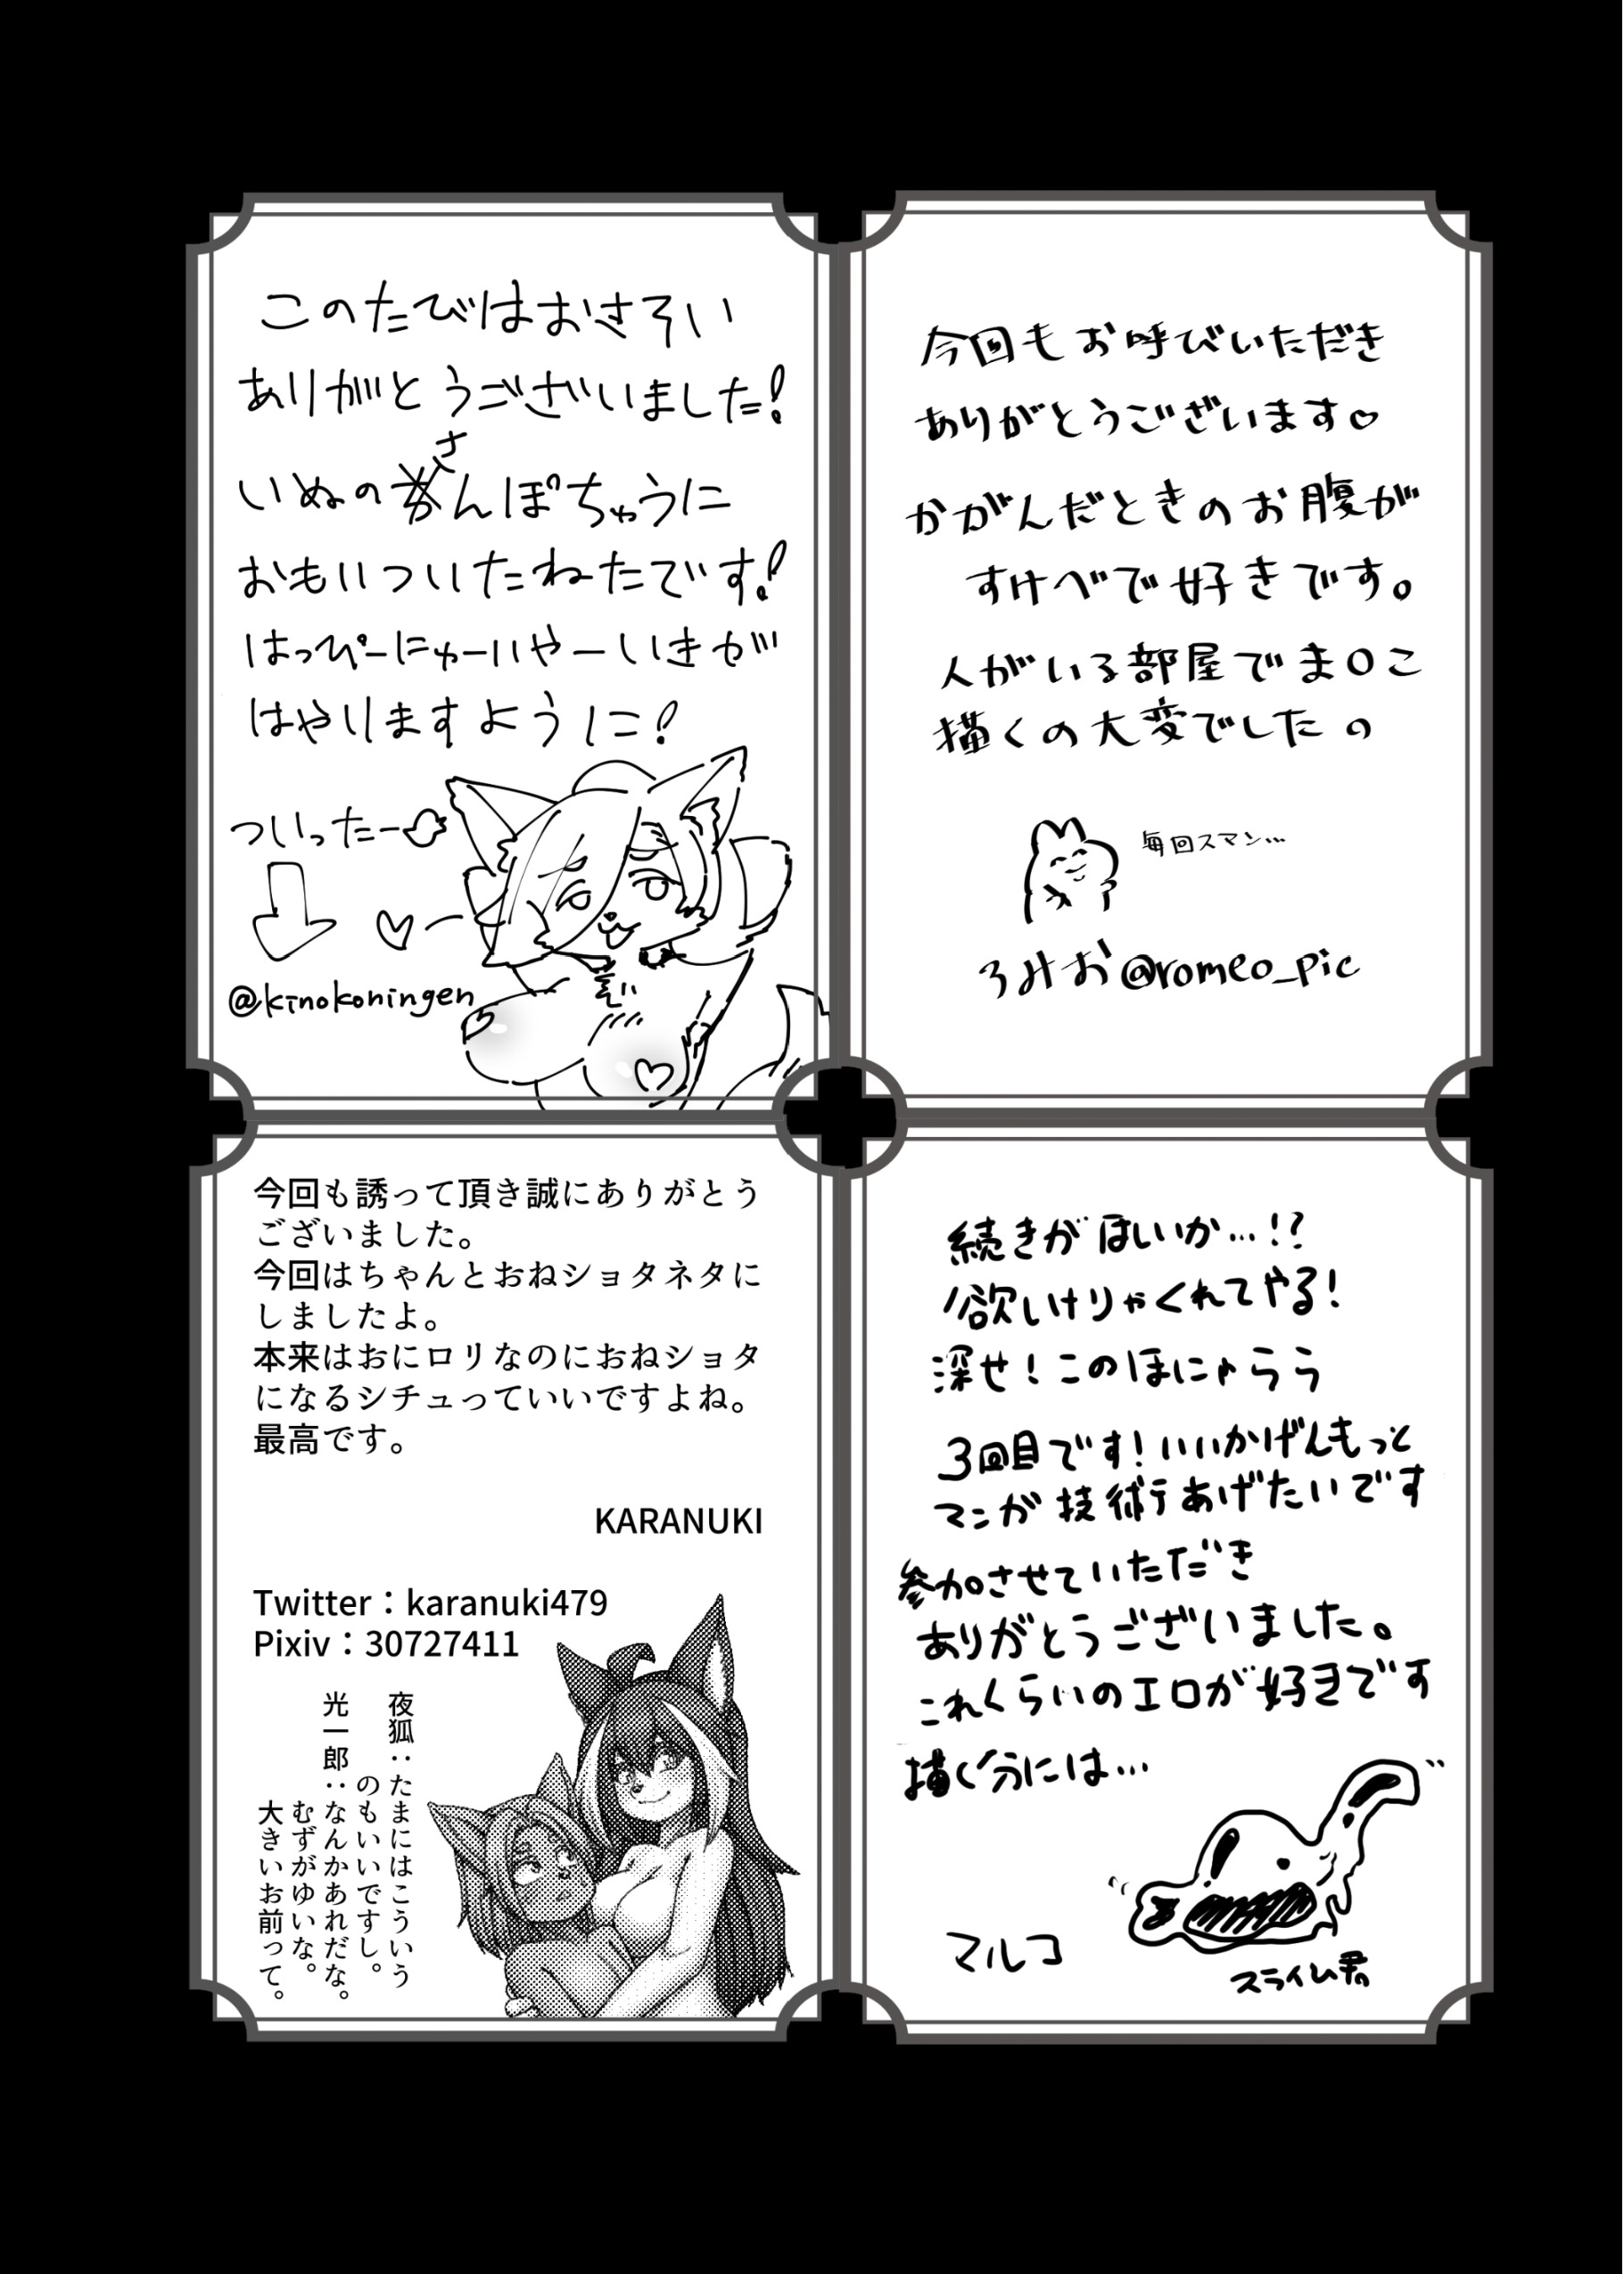 このたびはおさそい
ありがとうございました!
さ
いぬのんぽちゅうに
おもいついたねたです!
はっぴーにゅーいやーいきが
はやりますように!
ついったー
@kinokoningen
今回もお呼びいただき
ありがとうございます♡
かがんだときのお腹が
すけべで好きです。
人がいる部屋でま〇こ
描くの大変でしたの
毎回スマン…
ろみお@romeo_pic
今回も誘って頂き誠にありがとう
ございました。
今回はちゃんとおねショタネタに
しましたよ。
本来はおにロリなのにおねショタ
になるシチュっていいですよね。
最高です。
KARANUKI
Twitter：karanuki479
Pixiv：30727411
夜狐：たまにはこういう
のもいいですし。
光一郎：なんかあれだな。
むずがゆいな。
大きいお前って。
続きがほいか…!?
欲しけりゃくれてやる!
深せ!このほにゃらら
3回目です!いいかげんもっと
マンガ技術あげたいです
参加させていただき
ありがとうございました。
これくらいのエロが好きです
描く分には…
マルコ
スライム君